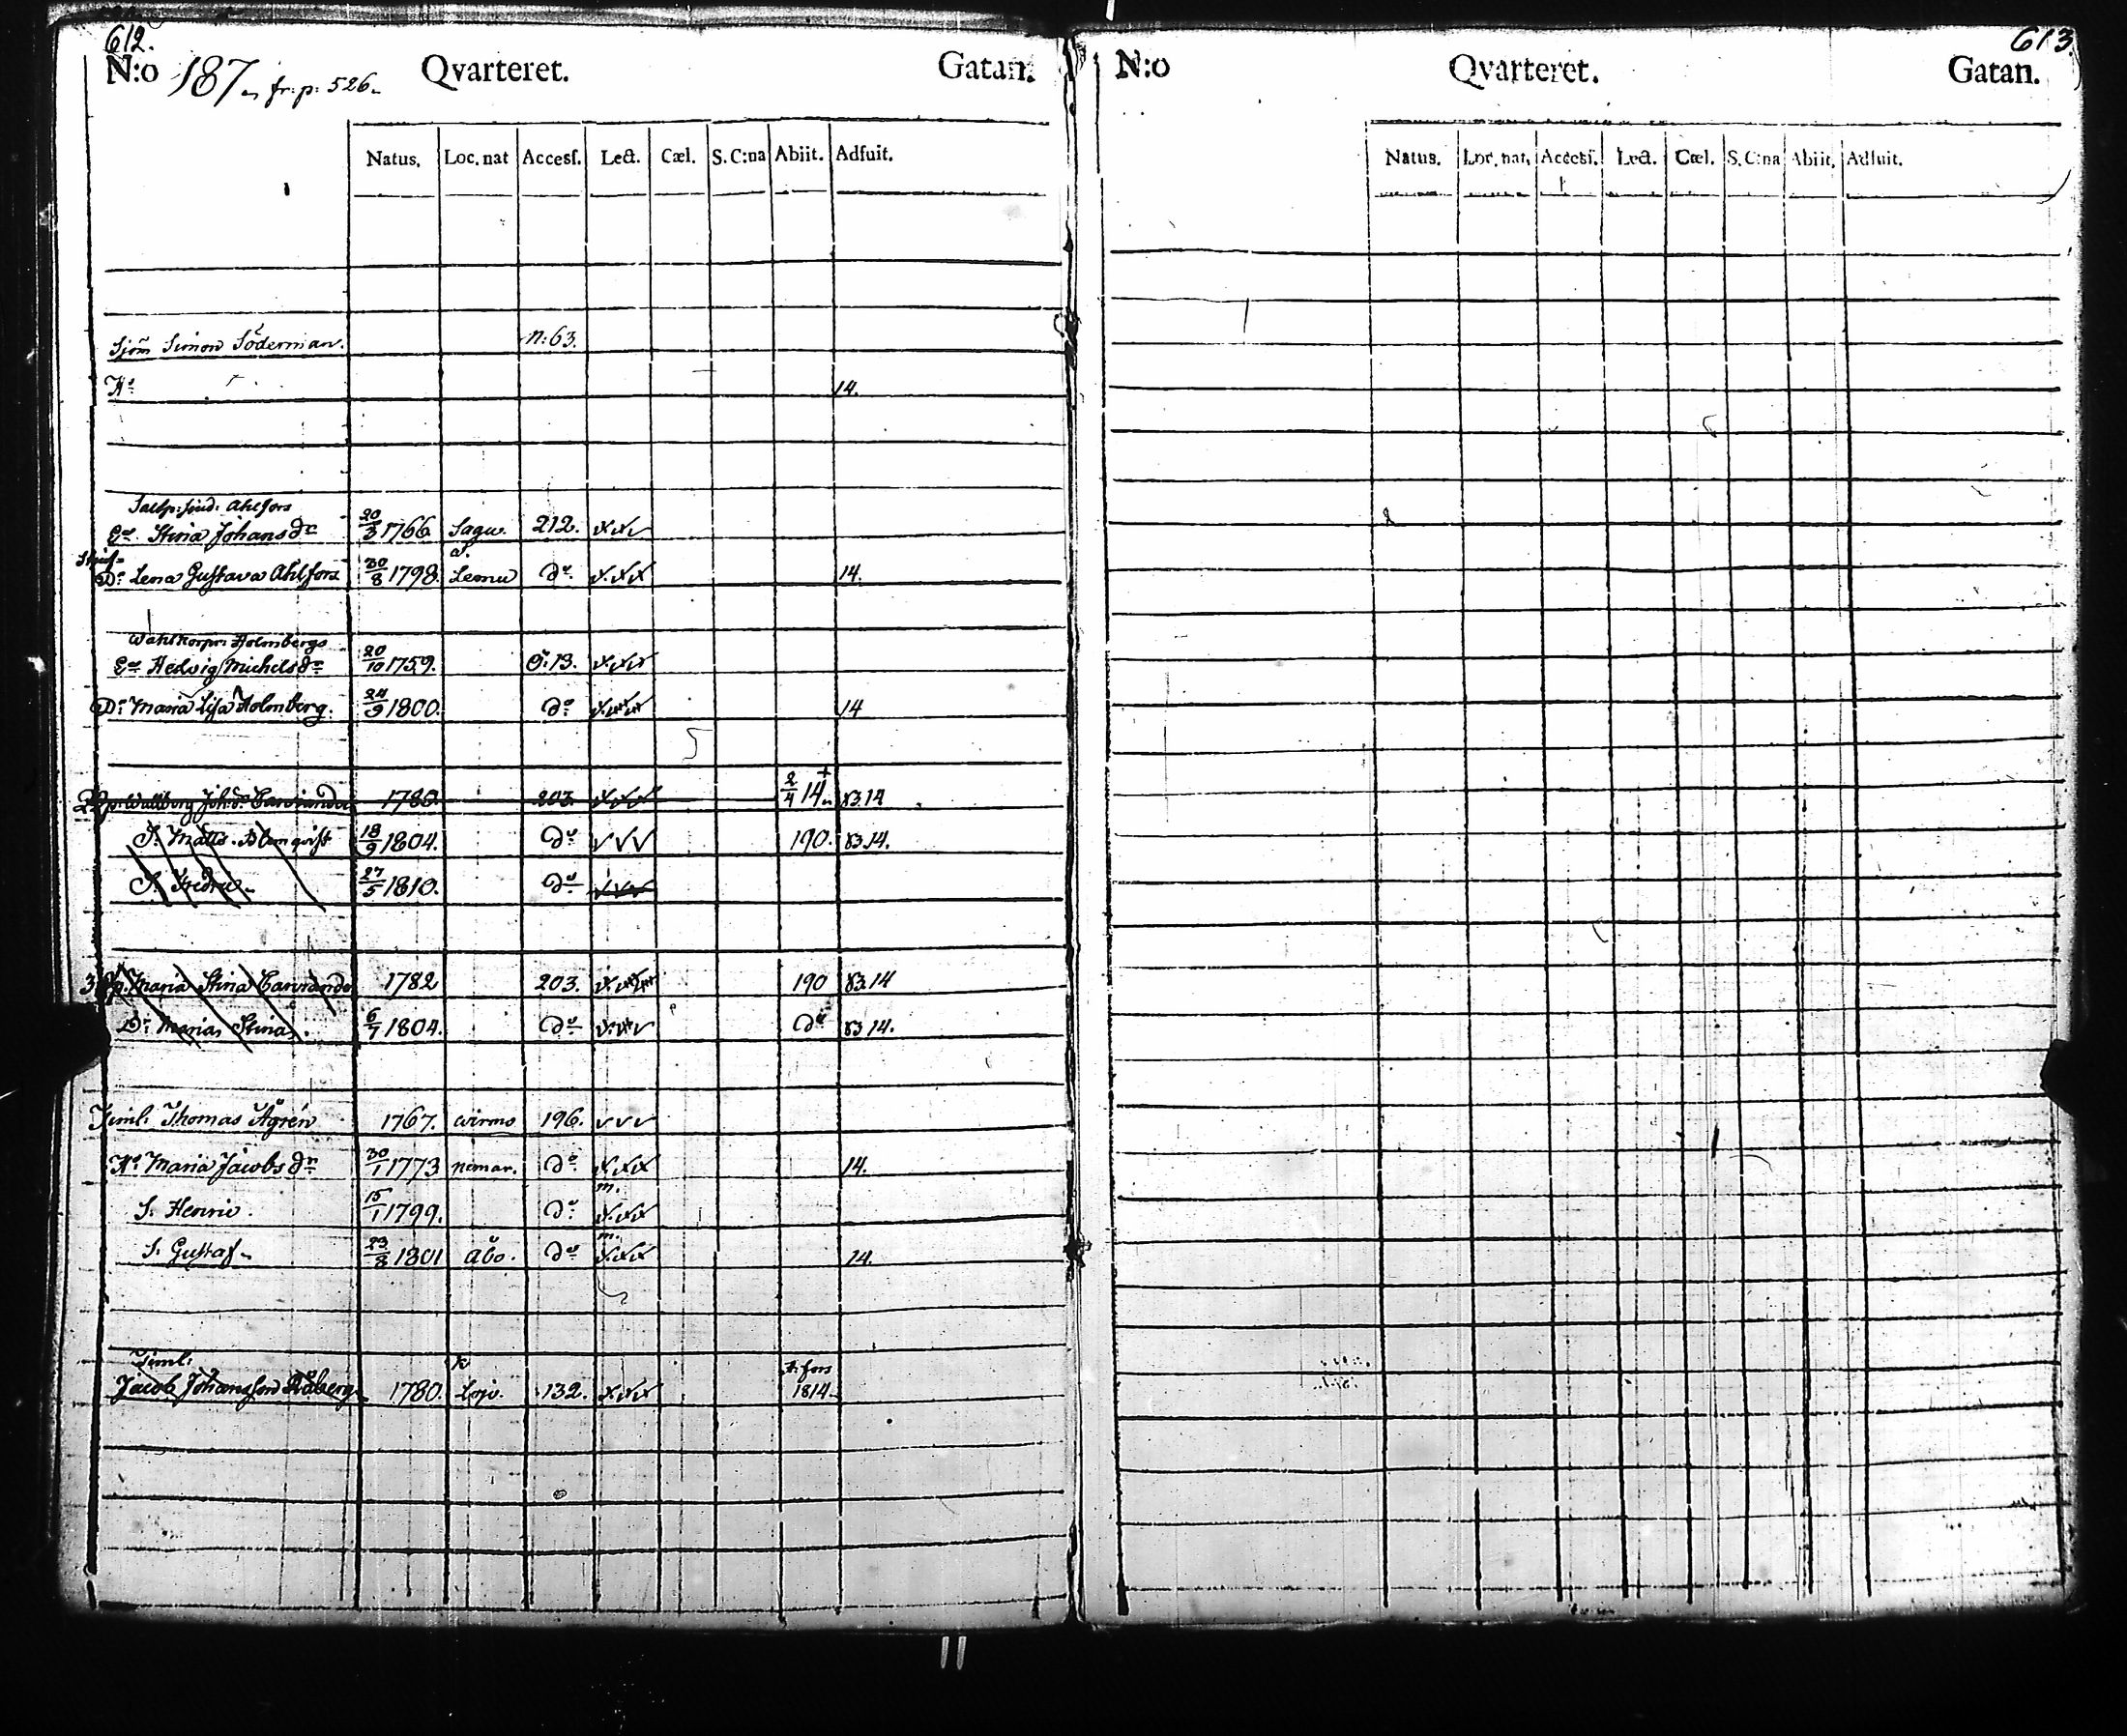 612.
N:o 187 fr: p: 526 Qvarteret. Gatan.
Natus. Loc. nat Accesſ. Lect. Cæl. S. C:na Abiit. Adfuit.
Sjöm Simon Söderman. n: 63.
H:o 14.
Ahlfors
E:a Stina Johans d:r 20/3 1766 Sagu. 212.
D:r Lena Gustava Ahlfors 30/8 1798. Lemu d:o 14.
Holmbergs
E:a Hedvig Michels d:r 20/10 1759. ö: 13.
D:r Maria Lisa Holmberg. 24/9 1800. d:o 14
1780 203. 2/4 14 + 83.14
S. Matts Blomqvist 18/9 1804. d:o 190. 83.14.
S. Fredric 27/5 1810. d:o
Maria Stina 1782 203. 190 83.14
D:r Maria Stina. 6/7 1804. d:o d:o 83.14.
Timl: Thomas Ågrén 1767. wirmo 196.
H:o Maria Jacobs d:r 30/1 1773 nemar. d:o 14.
S. Henric. 15/1 1799. m. d:o
S. Gustaf 23/8 1801 Åbo. d:o m. 14.
Timl: k H:fors
Jacob Johansson Råberg 1780. Lojo. 132. 1814
613.
N:o Qvarteret. Gatan.
Natus. Loc. nat. Accesſ. Lect. Cæl. S. C:na Abiit. Adfuit.